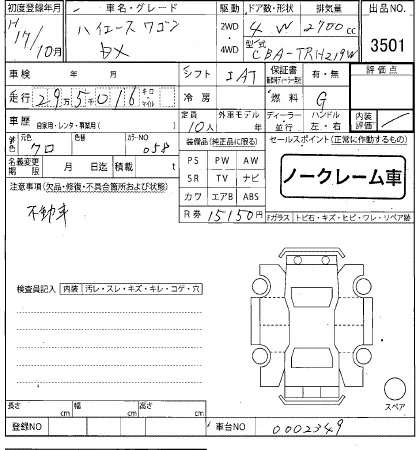 初度登録年月 車名・グレード 駆動 ドア数・形状 排気量 出品NO.
H 17/10月 ハイエース ワゴン 2WD 4 W 2700 cc
DX 4WD 型式 CBA-TRH219W 3501
車検 年 月 シフト IAT 保証書 有・無 評価点
走行 295016 キロ マイル 冷房 燃料 G
車歴 自家用・レンタ・事業用( ) 定員 10人 外車モデル ディーラー 並行 ハンドル 左・右 内装評価
外装色 元色 クロ 色替 カラーNO 058 装備品(純正品に限る) セールスポイント(正常に作動するもの)
名義変更期限 月 日迄 積載 t PS PW AW
ノークレーム車
注意事項(欠品・修復・不具合箇所および状態) SR TV ナビ
不動車 カワ エアB ABS
R券 15150円 Fガラス トビ石・キズ・ヒビ・ワレ・リペア跡
検査員記入 内装 汚レ・スレ・キズ・キレ・コゲ・穴
スペア
長さ cm 幅 cm 高さ cm
登録NO 車台NO 0002349